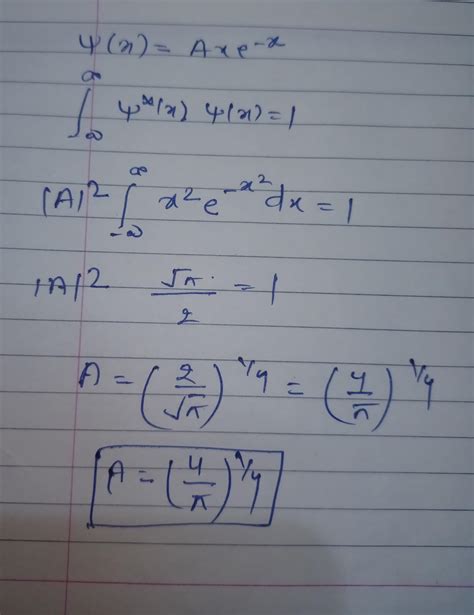 ψ(x) = Axe^-x
∫_∞^∞ ψ*(x) ψ(x) = 1
|A|^2 ∫_-∞^∞ x^2 e^-x^2 dx = 1
|A|^2 √π/2 = 1
A = (2/√π)^1/4 = (4/π)^1/4
A = (4/π)^1/4